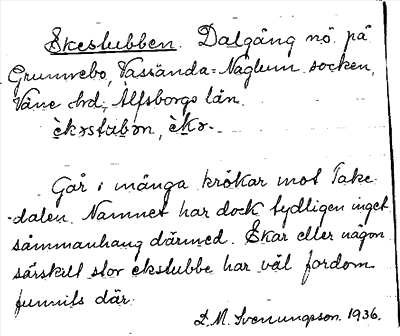 Ekestubben. Dalgång nö. på
Grunnebo, Vassända=Naglum socken,
Väne hd, Älfsborgs län.
èkəstùbən, èkə-.
Går i många krökar mot Take-
dalen. Namnet har dock tydligen inget
sammanhang därmed. Ekar eller någon
särskilt stor ekstubbe har väl fordom
funnits där.
D.M. Svenungsson. 1936.